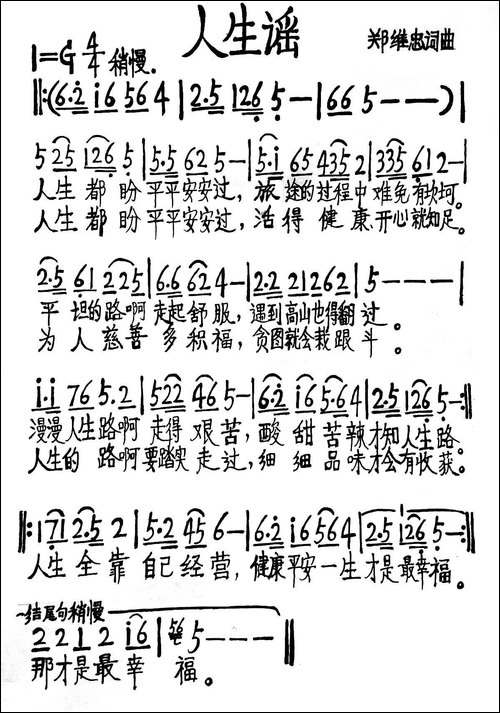 人生谣
郑维忠词曲
1=G 4/4 稍慢.
‖:(6·2 i6 56 4 | 2·5 126 5 — | 66 5 — — ) |
5 25 126 5 | 5·5 62 5— | 5·i 65 435 2 | 335 61 2— |
人生都盼平平安安过,旅途的过程中难免有坎坷。
人生都盼平平安安过,活得健康、开心就知足。
2·5 61 225 | 6·6 62 4— | 2·2 21262 | 5 — — — |
平坦的路啊走起舒服,遇到高山也得翻过。
为人慈善多积福,贪图就会栽跟斗。
i·i 76 5·2 | 522 46 5— | 6·2 i6 5·64 | 2·5 126 5— :‖
漫漫人生路啊走得艰苦,酸甜苦辣才知人生路。
人生的路啊要踏实走过,细细品味才会有收获。
‖: 1 71 2·5 2 | 5·2 45 6— | 6·2 i6 56 4 | 2·5 126 5— :‖
人生全靠自己经营,健康平安一生才是最幸福。
~结尾句稍慢
2 2 1 2 i6 | 56 5 — — — ‖
那才是最幸福。